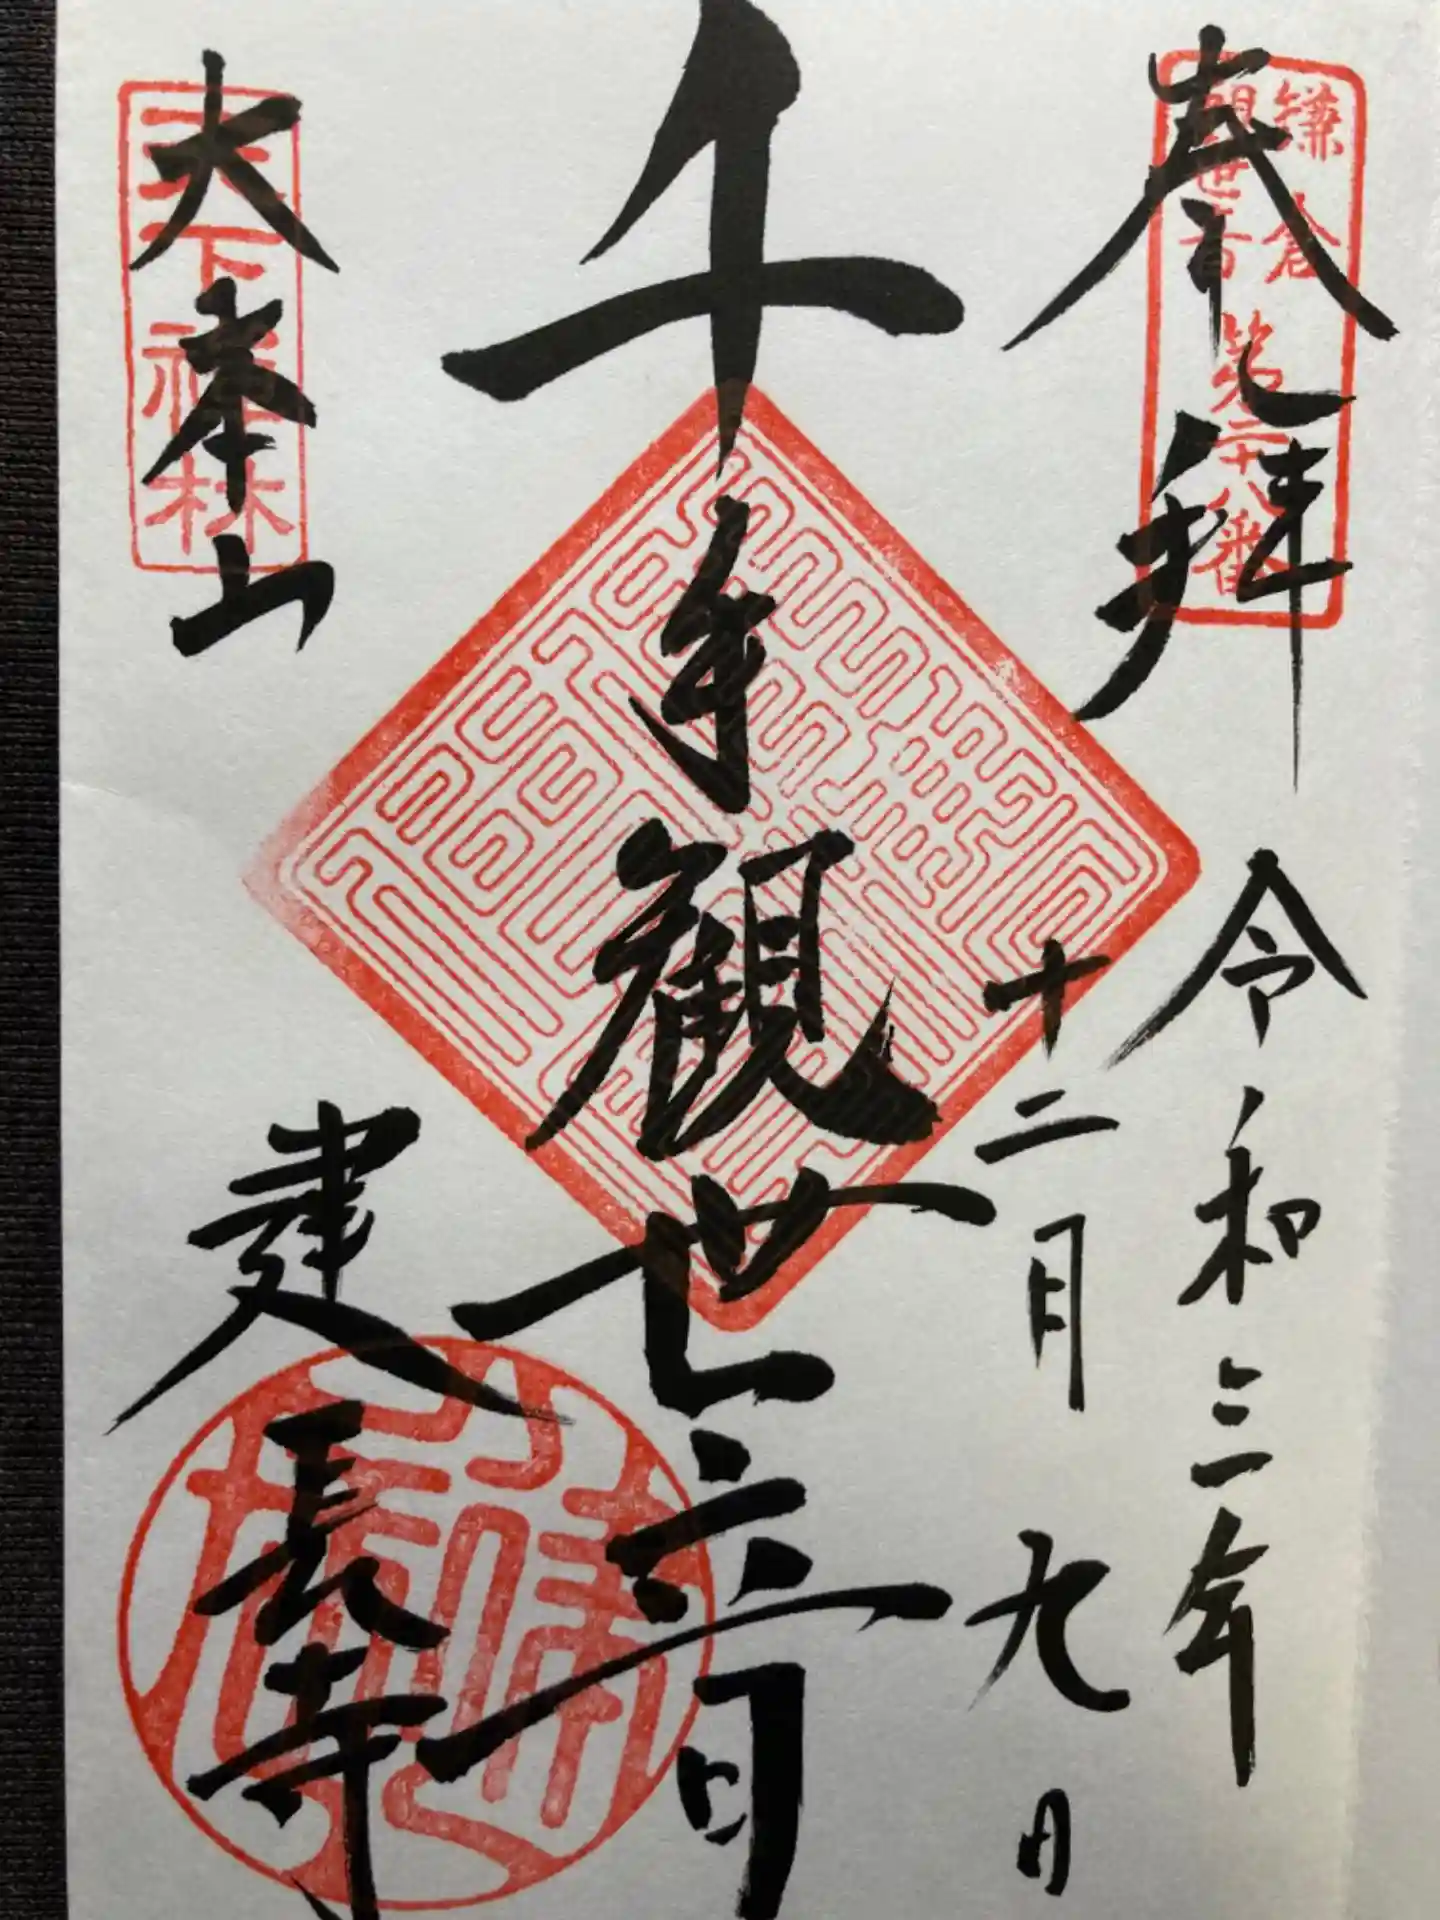 奉拝
鎌倉
観世音
第二十八番
令和三年
十二月九日
千手観世音
天下禅林
大本山
建長寺